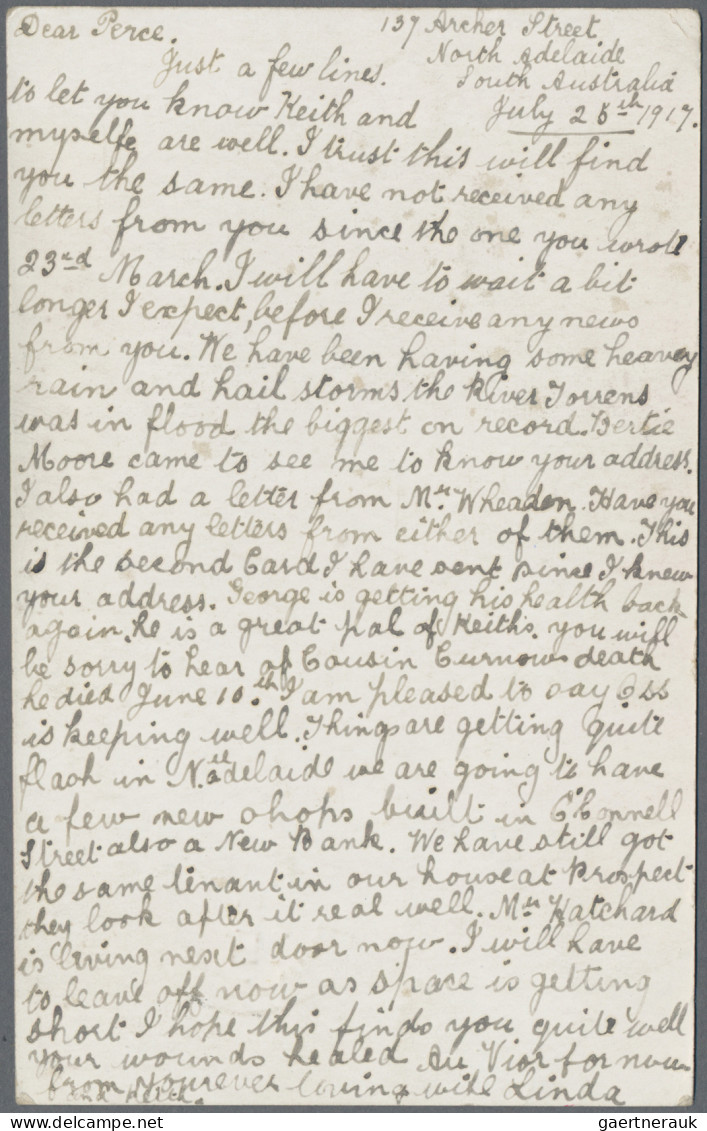 Dear Perce.
137 Archer Street
North Adelaide
South Australia
July 25th 1917.
Just a few lines.
to let you know Keith and
myselfe are well. I trust this will find
you the same. I have not received any
letters from you since the one you wrote
23rd March. I will have to wait a bit
longer I expect, before I receive any news
from you. We have been having some heavey
rain and hail storms, the River Torrens
was in flood the biggest on record. Bertie
Moore came to see me to know your address.
I also had a letter from Mr Wheaden. Have you
received any letters from either of them. This
is the second Card I have sent since I knew
your address. George is getting his health back
again, he is a great pal of Keiths. you will
be sorry to hear of Cousin Curnows death
he died June 10th. I am pleased to say
is keeping well. Things are getting quite
flash in N. Adelaide we are going to have
a few new shops built in O'Connell
Street also a New Bank. We have still got
the same tenant in our house at Prospect
they look after it real well. Mrs Hatchard
is living next door now. I will have
to leave off now as space is getting
short I hope this finds you quite well
your wounds healed Au Vior for now
from Yourever loving wife Linda
and Keith.
gaertnerauk